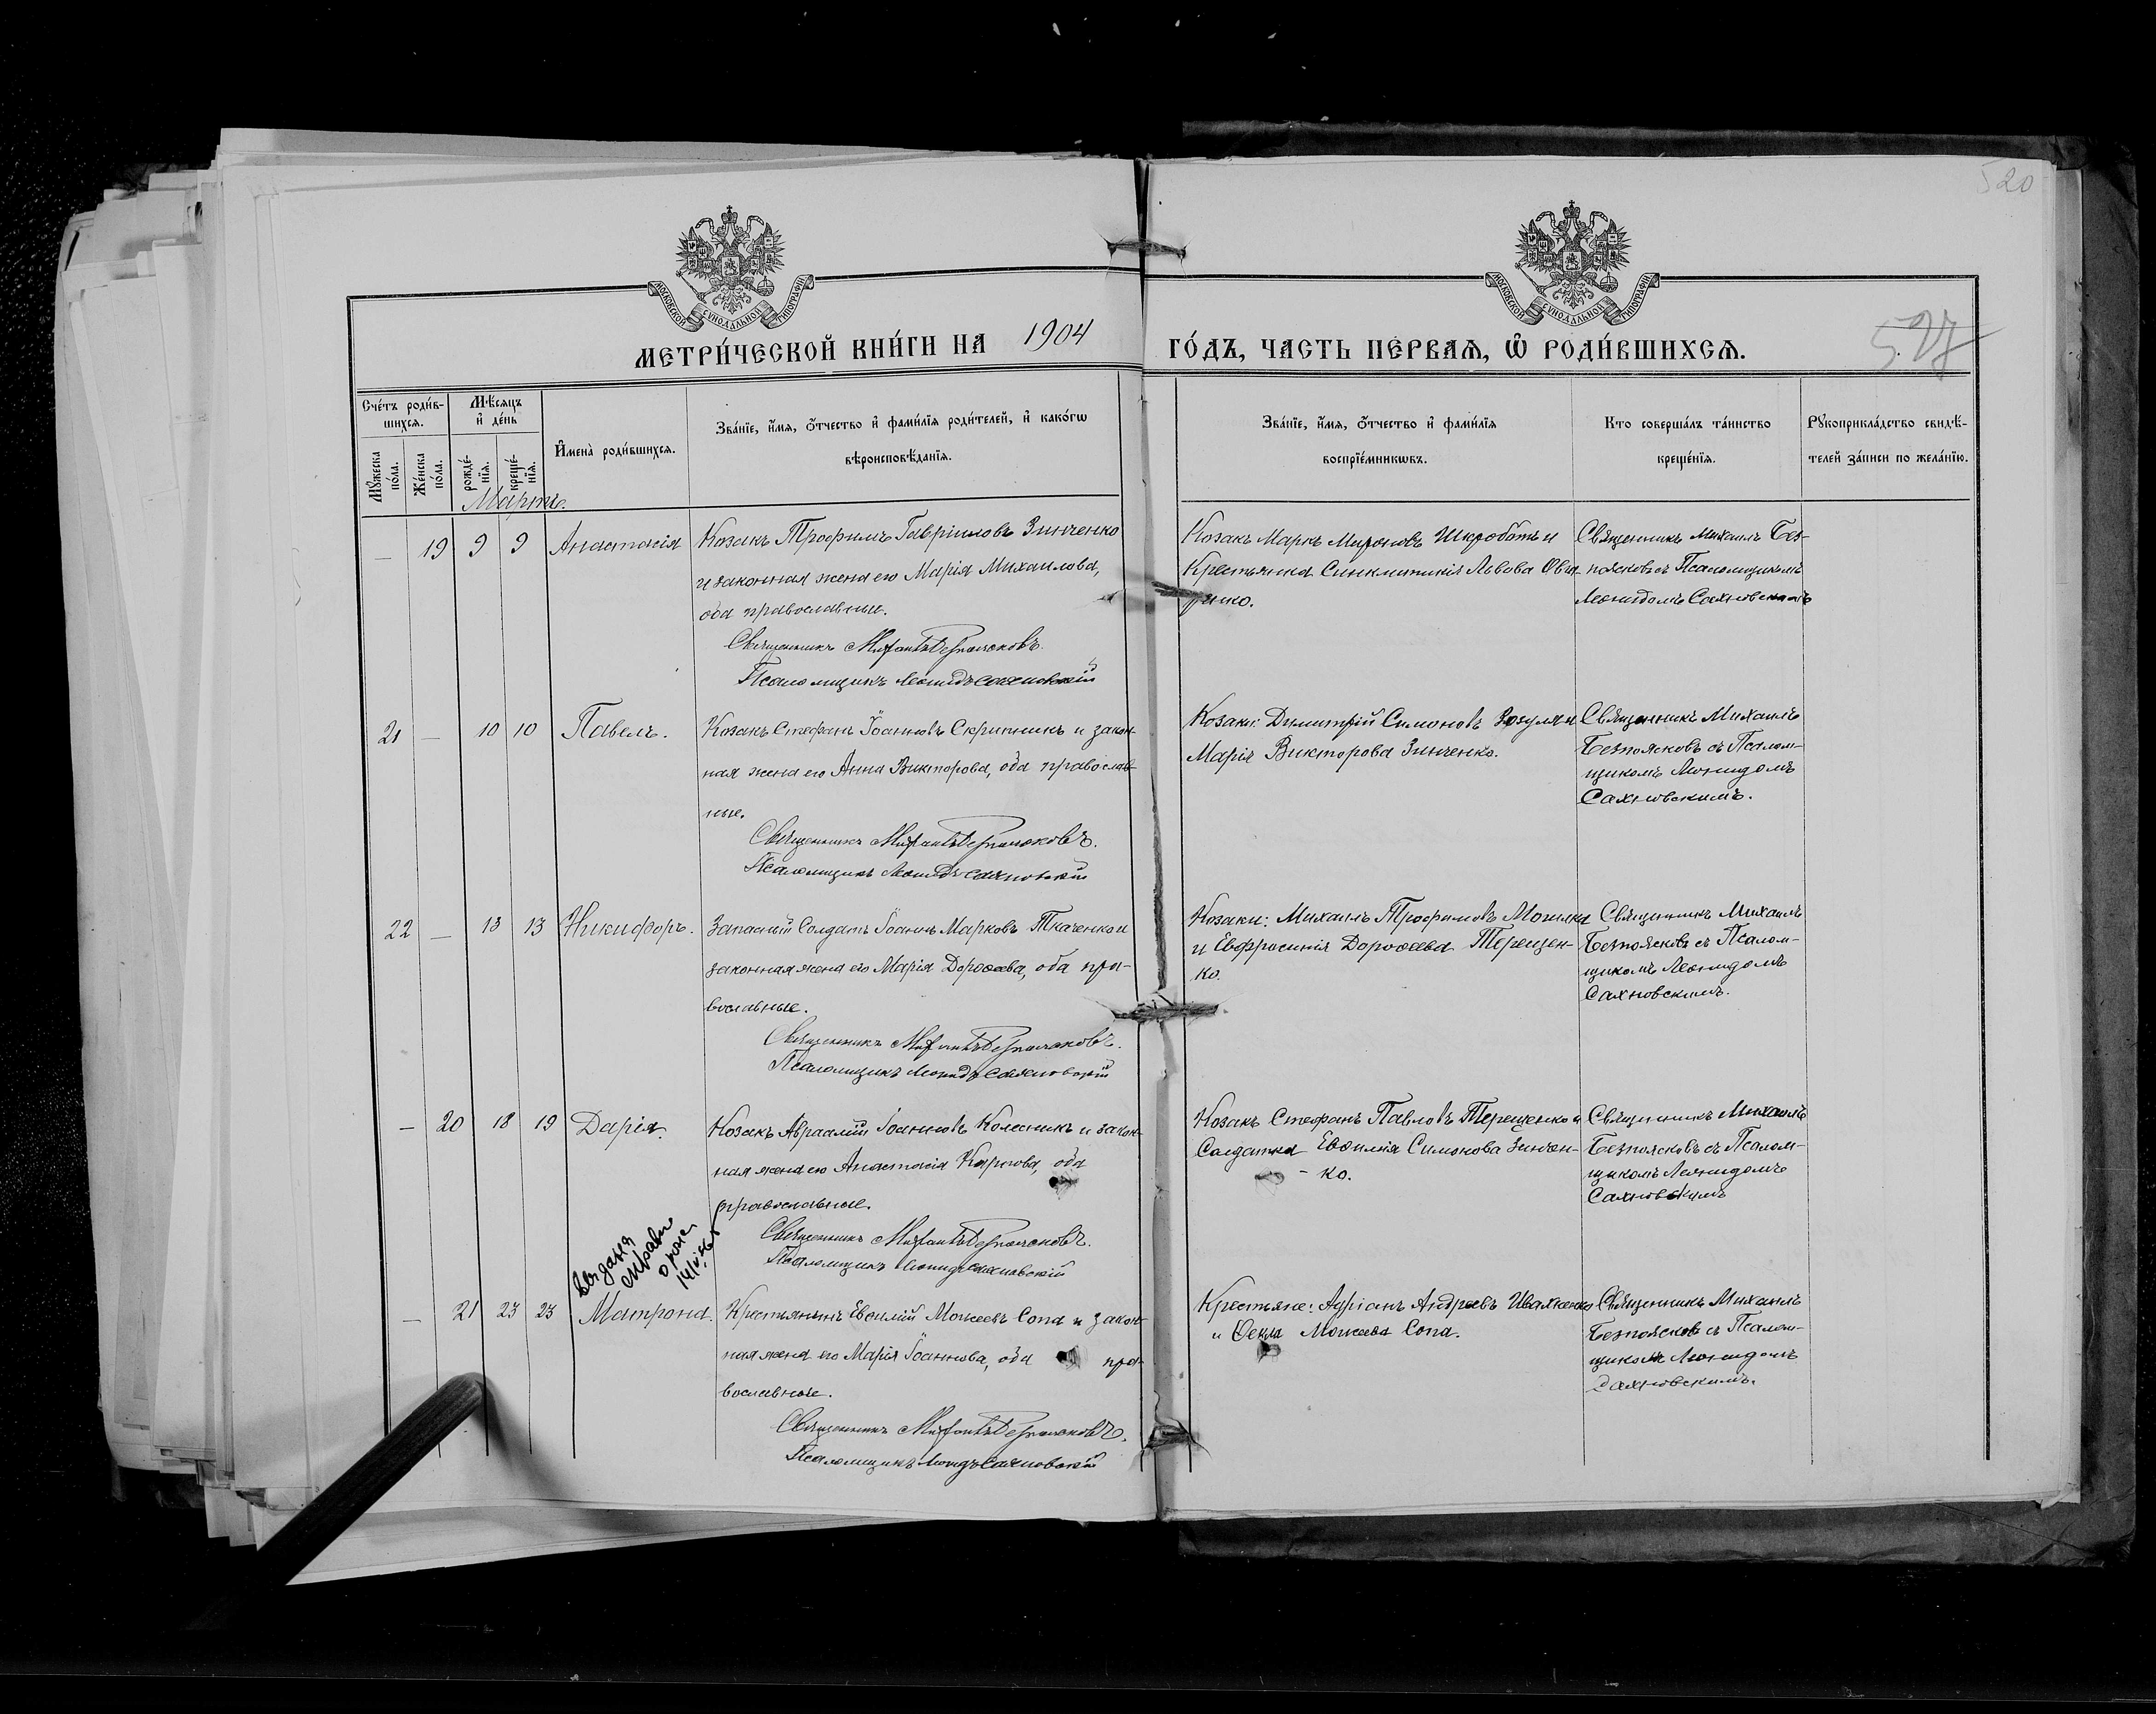 520
МОСКОВСКОЙ СѴНОДАЛЬНОЙ ТИПОГРАФІИ
МОСКОВСКОЙ СѴНОДАЛЬНОЙ ТИПОГРАФІИ
МЕТРИ́ЧЕСКОЙ КНИ́ГИ НА 1904
ГО́ДЪ, ЧАСТЬ ПЕ́РВАѦ, Ѽ РОДИ́ВШИХСѦ.
Сче́тъ роди́в-
шихсѧ.
Мꙋ́жеска по́ла.
Же́нска по́ла.
Мѣ́сѧцъ
и҆ де́нь
рожде́-
нїѧ.
креще́-
нїѧ.
И҆мена̀ роди́вшихсѧ.
Зва́нїе, и҆́мѧ, ѻ҆́тчество и҆ фами́лїѧ роди́телей, и҆ како́гѡ
вѣроисповѣ́данїѧ.
Зва́нїе, и҆́мѧ, ѻ҆́тчество и҆ фами́лїѧ
воспрїе́мникѡвъ.
Кто соверша́лъ та́инство
креще́нїѧ.
Рꙋкоприкла́дство свидѣ́-
телей за́писи по жела́нїю.
Мартъ.
— 19 9 9 Анастасія
Козакъ Трофимъ Гавріиловъ Зинченко
и законная жена его Марія Михаилова,
оба православные.
Священникъ Михаилъ Безпоясковъ.
Псаломщикъ Леонидъ Сахновскій
Козакъ Маркъ Мироновъ Шкроботъ и
Крестьянка Синклитикія Львова
Священникъ Михаилъ Без-
поясковъ съ Псаломщикомъ
Леонидомъ Сахновскимъ
21 — 10 10 Павелъ.
Козакъ Стефанъ Іоанновъ Скрипникъ и закон-
ная жена его Анна Викторова, оба православ-
ные.
Священникъ Михаилъ Безпоясковъ.
Псаломщикъ Леонидъ Сахновскій
Козаки: Димитрій Симоновъ Зозуля и
Марія Викторова Зинченко.
Священникъ Михаилъ
Безпоясковъ съ Псалом-
щикомъ Леонидомъ
Сахновскимъ.
22 — 13 13 Никифоръ.
Запасный Солдатъ Іоаннъ Марковъ Ткаченко и
законная жена его Марія Дороѳеева, оба пра-
вославные.
Священникъ Михаилъ Безпоясковъ.
Псаломщикъ Леонидъ Сахновскій
Козаки: Михаилъ Трофимовъ Могилка
и Евфросинія Дороѳеева Терещен-
ко.
Священникъ Михаилъ
Безпоясковъ съ Псалом-
щикомъ Леонидомъ
Сахновскимъ.
— 20 18 19 Дарія.
Козакъ Авраамій Іоанновъ Колесникъ и закон-
ная жена его Анастасія Карпова, оба
православные.
Священникъ Михаилъ Безпоясковъ.
Псаломщикъ Леонидъ Сахновскій
Козакъ Стефанъ Павловъ Терещенко и
Солдатка Евѳимія Симонова Зинчен-
- ко.
Священникъ Михаилъ
Безпоясковъ съ Псалом-
щикомъ Леонидомъ
Сахновскимъ
— 21 23 23 Матрона.
Крестьянинъ Евѳимій Моисеевъ Сопа и закон-
ная жена его Марія Іоаннова, оба пра-
вославные.
Священникъ Михаилъ Безпоясковъ.
Псаломщикъ Леонидъ Сахновскій
Крестьяне: Адріанъ Андреевъ Ивахненко
и Ѳекла Моисеева Сопа.
Священникъ Михаилъ
Безпоясковъ съ Псалом-
щикомъ Леонидомъ
Сахновскимъ.